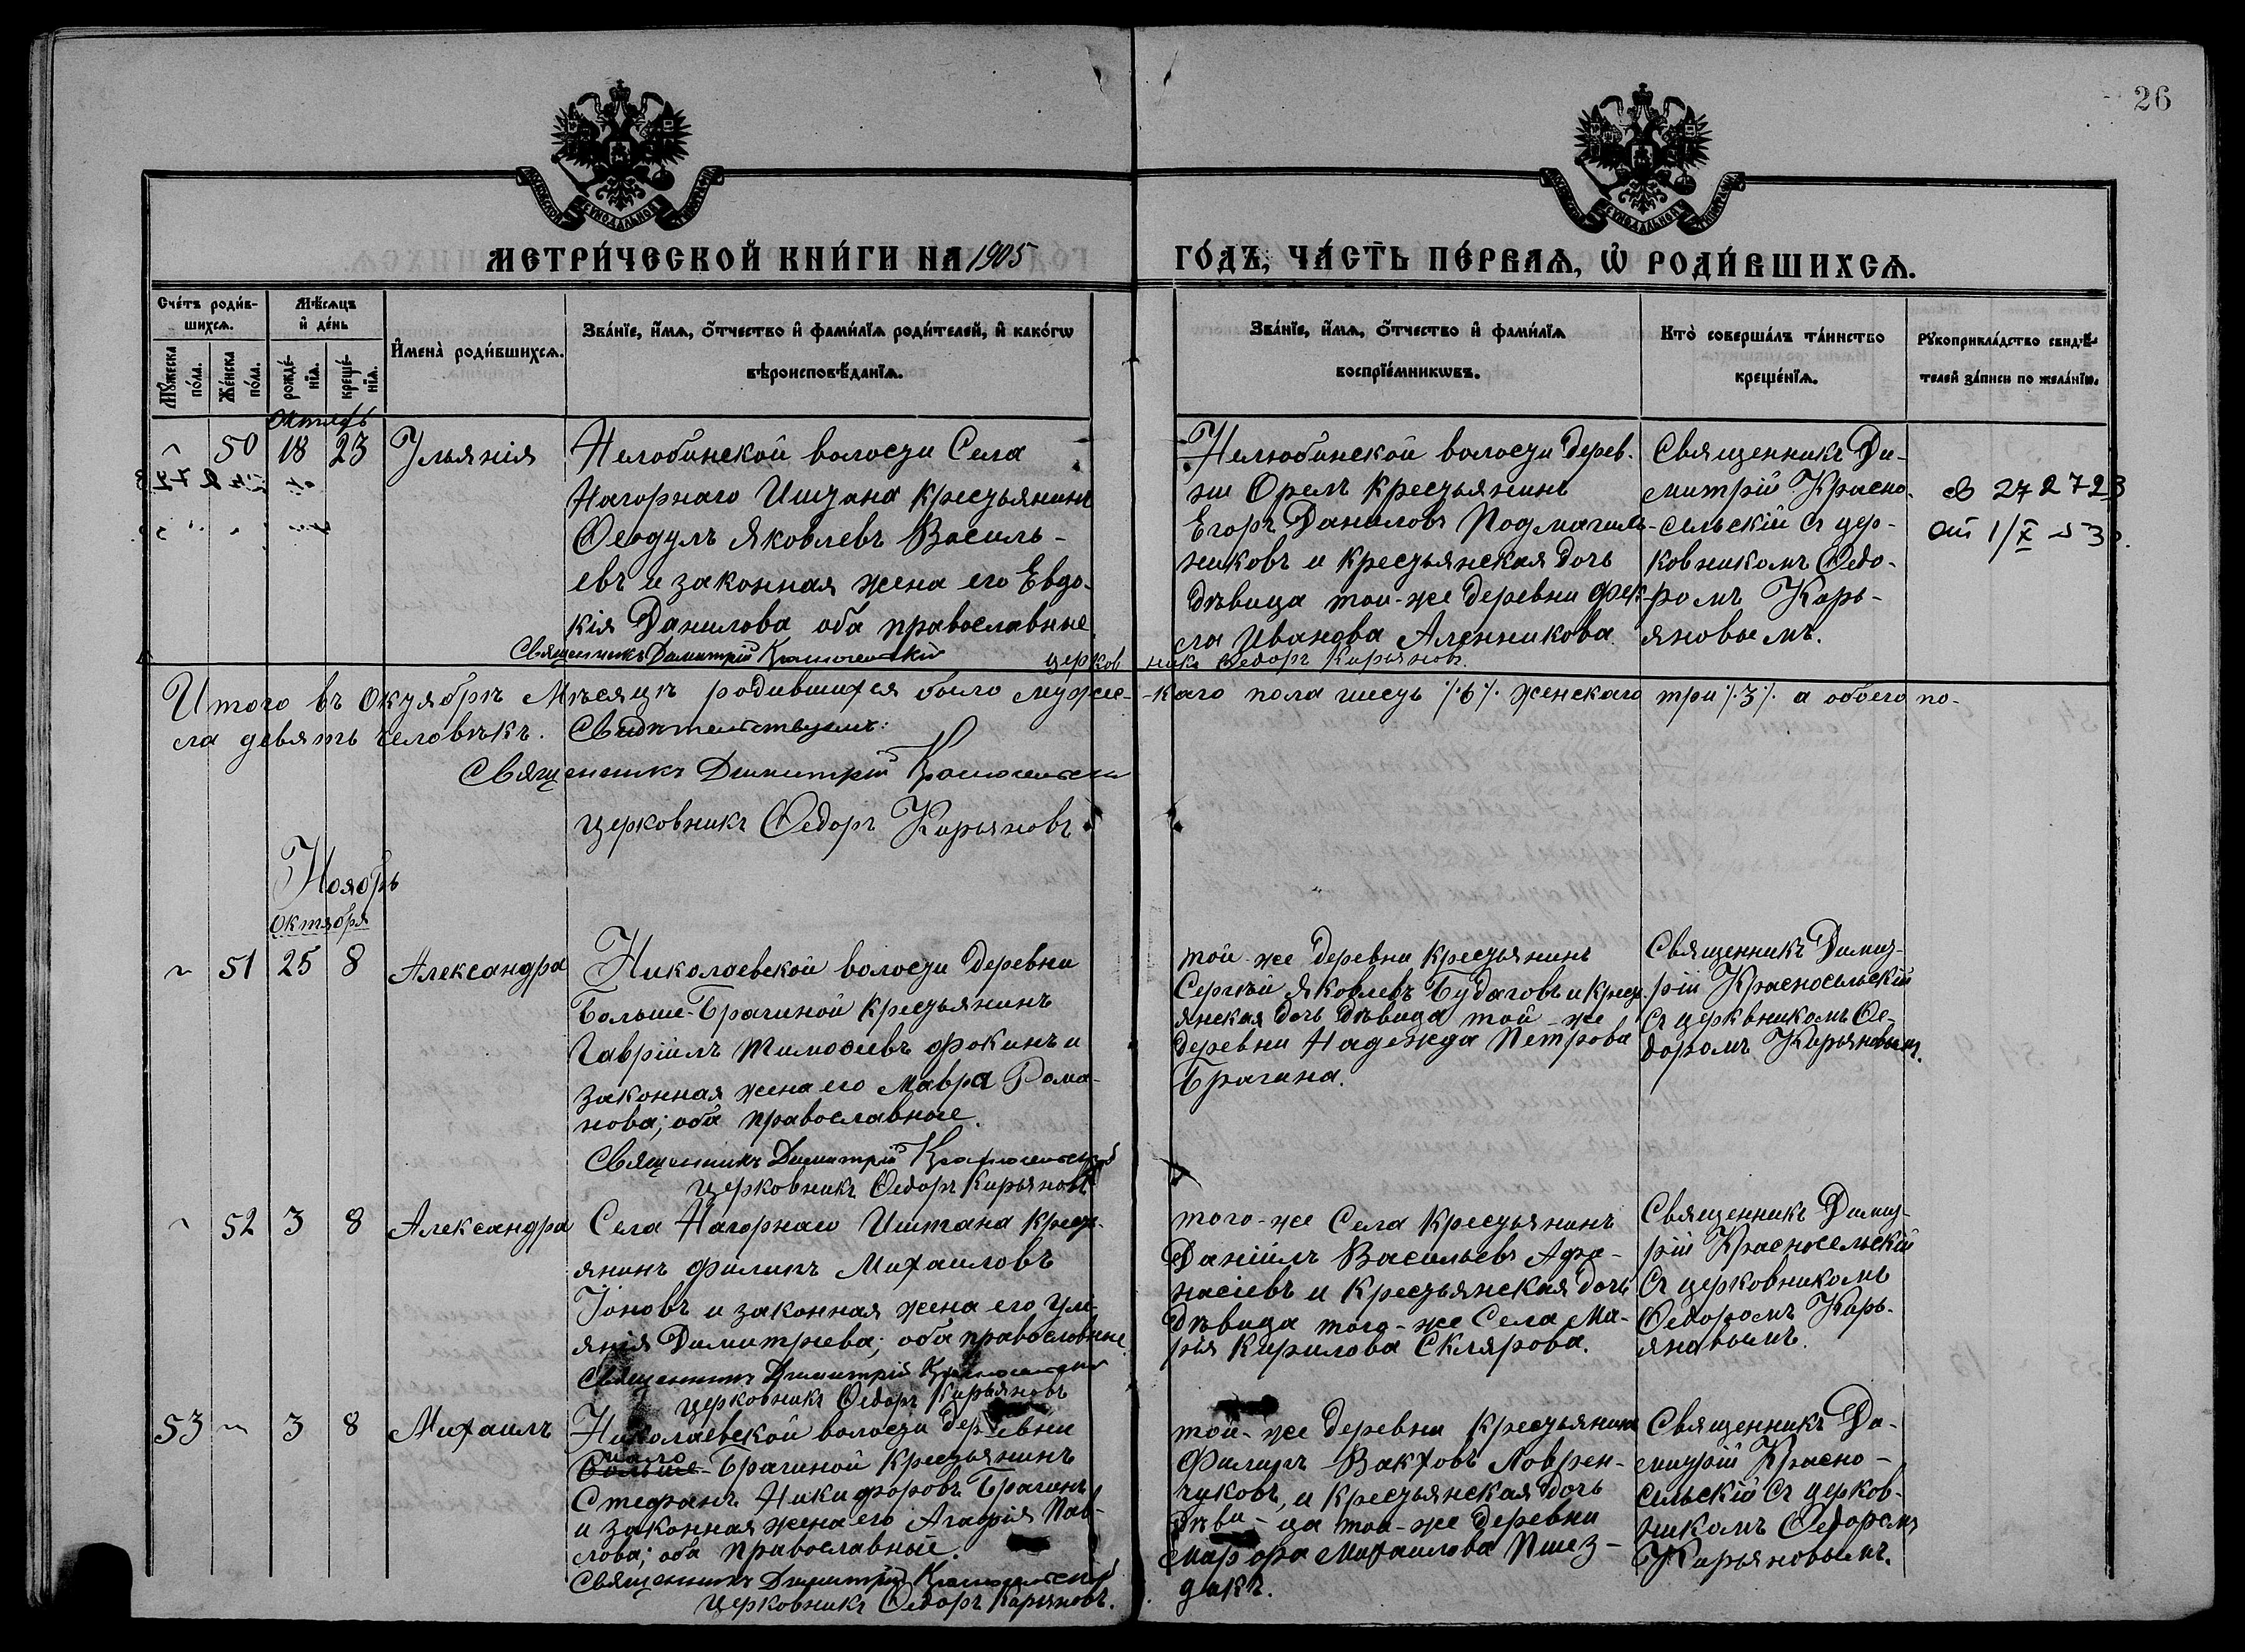 26
МОСКОВСКОЙ СѴНОДАЛЬНОЙ ТИПОГРАФІИ
МОСКОВСКОЙ СѴНОДАЛЬНОЙ ТИПОГРАФІИ
МЕТРИ́ЧЕСКОЙ КНИ́ГИ НА 1905 ГО́ДЪ, ЧА́СТЬ ПЕ́РВАѦ, Ѡ҆ РОДИ́ВШИХСѦ.
Сче́тъ роди́в-
шихсѧ.
Мѣ́сѧцъ
и҆ де́нь
Мꙋ́жеска
по́ла.
Же́нска
по́ла.
рожде́-
нїѧ.
креще́-
нїѧ.
И҆мена̀ роди́вшихсѧ.
Зва́нїе, и҆́мѧ, ѻ҆́тчество и҆ фами́лїѧ роди́телей, и҆ како́гѡ
вѣроисповѣ́данїѧ.
Зва́нїе, и҆́мѧ, ѻ҆́тчество и҆ фами́лїѧ
воспрїе́мникѡвъ.
Кто̀ соверша́лъ та́инство
креще́нїѧ.
Рꙋкоприкла́дство свидѣ́-
телей за́писи по жела́нїю.
Октябрь
50 18 23 Ульянія
Нелюбинской волости Села
Нагорнаго Иштана крестьянинъ
Ѳеодулъ Яковлевъ Василь-
евъ и законная жена его Евдо-
кія Данилова оба православные
Священникъ Димитрій Красносельскій
церковникъ Ѳедоръ Кирьяновъ.
Нелюбинской волости дерев.
ни Орелъ крестьянинъ
Егоръ Даниловъ Подмагиль-
никовъ и крестьянская дочь
дѣвица той-же деревни Фек-
ла Иванова Аленникова
Священникъ Ди-
митрій Красно-
сельскій съ цер-
ковникомъ Ѳедо-
ромъ Кирь-
яновымъ.
св 272723
от 1/X 53
Итого въ октябрѣ мѣсяцѣ родившихся было мужес-каго пола шесть /.6/. женскаго три /.3/. а обоего по-
ла девять человѣкъ. Свидѣтельствуемъ:
Священникъ Димитрій Красносельскій
церковникъ Ѳедоръ Кирьяновъ
Ноябрь
октября
51 25 8 Александра
Николаевской волости деревни
Больше-Брагиной крестьянинъ
Гавріилъ Тимоѳеевъ Фокинъ и
законная жена его Мавра Рома-
нова; оба православные.
Священникъ Димитрій Красносельскій
церковникъ Ѳедоръ Кирьяновъ
той-же деревни крестьянинъ
Сергѣй Яковлевъ Будаговъ и крест.
янская дочь дѣвица той-же
деревни Надежда Петрова
Брагина.
Священникъ Димит-
рій Красносельскій
съ церквникомъ Ѳе-
доромъ Кирьяновымъ.
52 3 8 Александра
Села Нагорнаго Иштана крест-
янинъ Филипъ Михаиловъ
Іоновъ и законная жена его Улі-
янія Димитрiева; оба православные
Священникъ Димитрій Красносельскій
церковникъ Ѳедоръ Кирьяновъ
того-же Села крестьянинъ
Даніилъ Васильевъ Афа-
насіевъ и крестьянская дочь
дѣвица того-же Села Ма-
рія Кирилова Склярова.
Священникъ Димит-
рій Красносельскій
съ церковникомъ
Ѳедоромъ Кирь-
яновымъ.
53 3 8 Михаилъ
Николаевской волости деревни
мало
Больше-Брагиной крестьянинъ
Стефанъ Никифоровъ Брагинъ
и законная жена его Агафія Пав-
лова; оба православные.
Священникъ Димитрій Красносельскій
церковникъ Ѳедоръ Кирьяновъ.
той-же деревни крестьянинъ
Филипъ Вакховъ Лаврен-
чуковъ, и крестьянская дочь
дѣви-ца той-же деревни
Марфора Михаилова Пшез-
дакъ.
Священникъ Ди-
митрій Красно-
сельскій съ церков-
никомъ Ѳедоромъ
Кирьяновымъ.